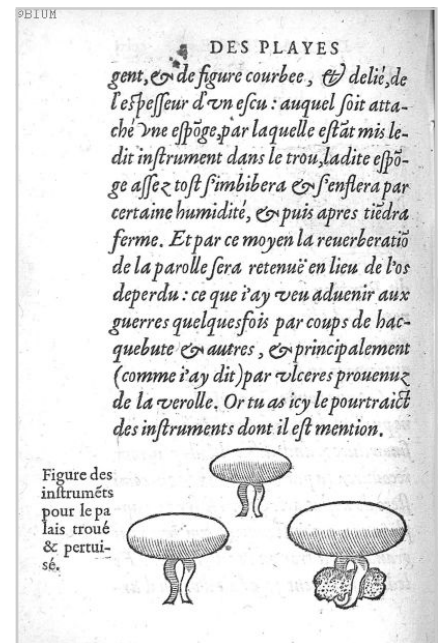 BIUM
DES PLAYES
gent, & de figure courbee, & delié, de
l'eſpeſſeur d'vn eſcu : auquel ſoit atta-
ché vne eſpõge, par laquelle eſtãt mis le-
dit inſtrument dans le trou, ladite eſpõ-
ge aſſez toſt ſ'imbibera & ſ'enflera par
certaine humidité, & puis apres tiẽdra
ferme. Et par ce moyen la reuerberatiõ
de la parolle ſera retenuë en lieu de l'os
deperdu : ce que i'ay veu aduenir aux
guerres quelquesfois par coups de hac-
quebute & autres, & principalement
(comme i'ay dit) par vlceres prouenuz
de la verolle. Or tu as icy le pourtraict
des inſtruments dont il eſt mention.
Figure des
inſtrumẽts
pour le pa
lais troué
& pertui-
sé.